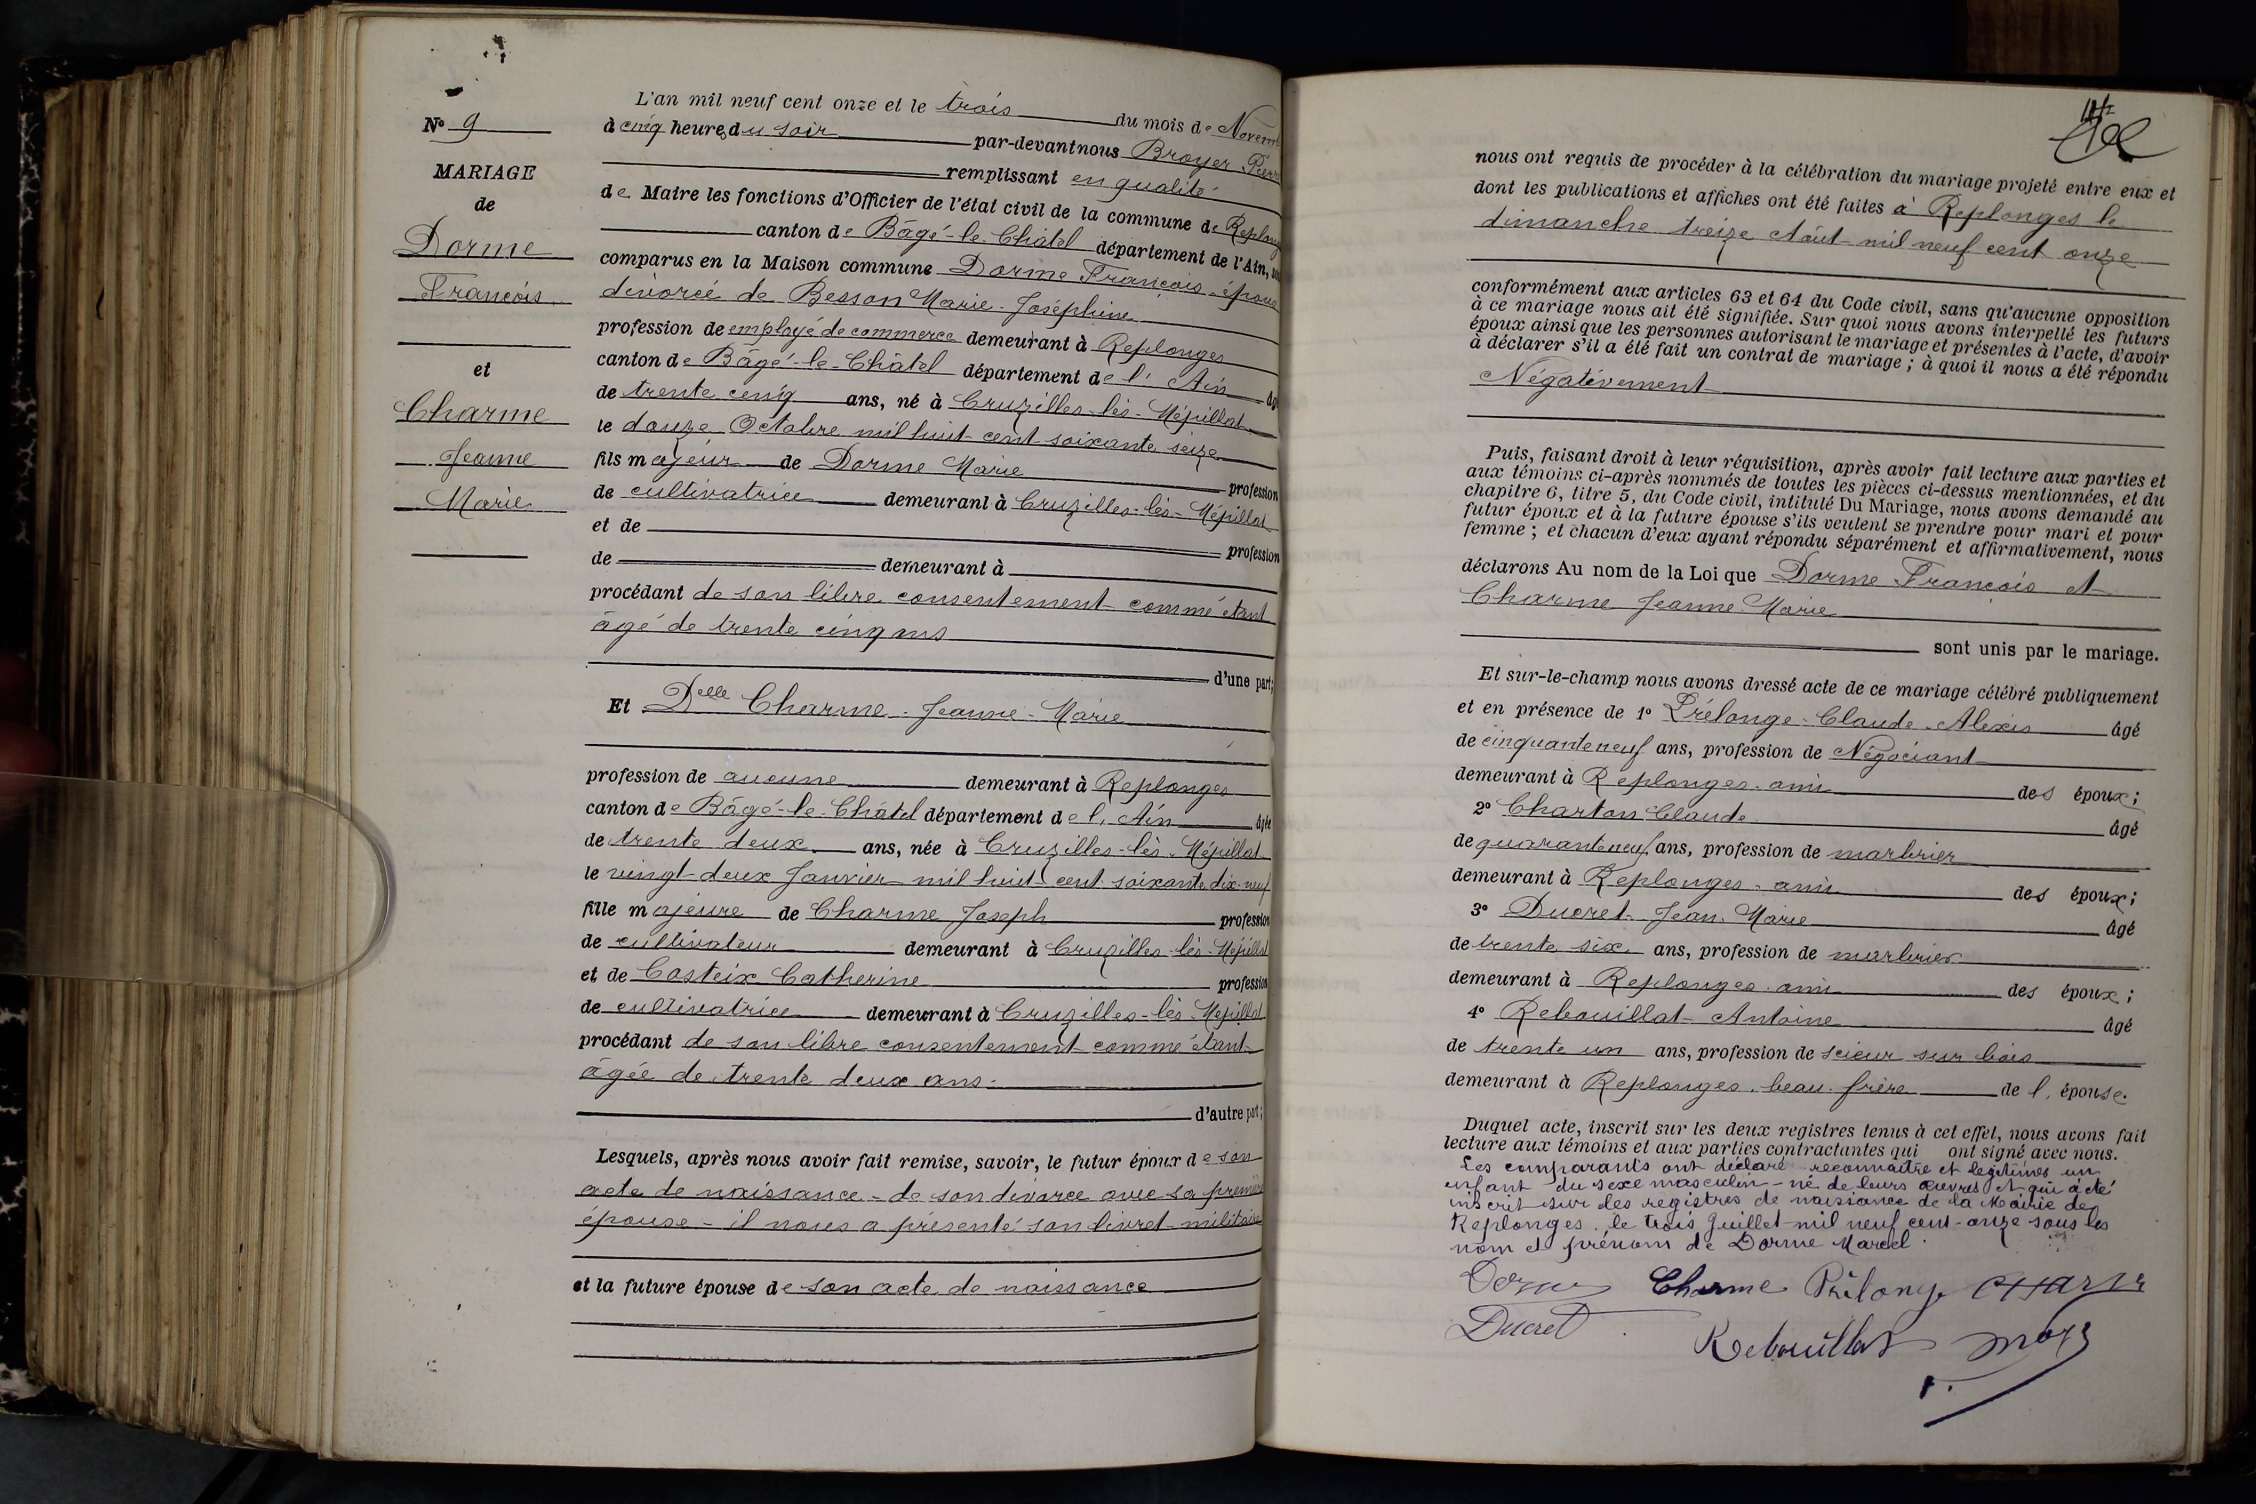 N° 9
MARIAGE
de
Dorme
François
et
Charme
Jeanne
Marie
L'an mil neuf cent onze et le trois du mois de Novem
à cinq heures du soir par-devant nous Broyer Pierr
remplissant en qualité
de Maire les fonctions d'Officier de l'état civil de la commune de Replong
canton de Bâgé-le-Châtel département de l'Ain,
comparus en la Maison commune Dorme François époux
divorcé de Besson Marie-Joséphine
profession de employé de commerce demeurant à Replonges
canton de Bâgé-le-Châtel département de l'Ain âgé
de trente cinq ans, né à Cruzilles-lès-Mépillat
le douze Octobre mil huit-cent soixante seize
fils majeur de Dorme Marie profession
de cultivatrice demeurant à Cruzilles-lès-Mépillat
et de profession
de demeurant à
procédant de son libre consentement comme étant
âgé de trente cinq ans
d'une part;
Et Delle Charme Jeanne-Marie
profession de aucune demeurant à Replonges
canton de Bâgé-le-Châtel département de l'Ain âgée
de trente deux ans, née à Cruzilles-lès-Mépillat
le vingt-deux Janvier mil huit-cent soixante dix-neuf
fille majeure de Charme Joseph profession
de cultivateur demeurant à Cruzilles-lès-Mépillat
et de Costeix Catherine profession
de cultivatrice demeurant à Cruzilles-lès-Mepillat
procédant de son libre consentement comme étant
âgée de trente deux ans.
d'autre part;
Lesquels, après nous avoir fait remise, savoir, le futur époux de son
acte de naissance - de son divorce avec sa première
épouse - il nous a présenté son livret-militaire
et la future épouse de son acte de naissance
nous ont requis de procéder à la célébration du mariage projeté entre eux et
dont les publications et affiches ont été faites à Replonges le
dimanche treize Août mil neuf cent onze
conformément aux articles 63 et 64 du Code civil, sans qu'aucune opposition
à ce mariage nous ait été signifiée. Sur quoi nous avons interpellé les futurs
époux ainsi que les personnes autorisant le mariage et présentes à l'acte, d'avoir
à déclarer s'il a été fait un contrat de mariage ; à quoi il nous a été répondu
Négativement
Puis, faisant droit à leur réquisition, après avoir fait lecture aux parties et
aux témoins ci-après nommés de toutes les pièces ci-dessus mentionnées, et du
chapitre 6, titre 5, du Code civil, intitulé Du Mariage, nous avons demandé au
futur époux et à la future épouse s'ils veulent se prendre pour mari et pour
femme ; et chacun d'eux ayant répondu séparément et affirmativement, nous
déclarons Au nom de la Loi que Dorme François et
Charme Jeanne Marie
sont unis par le mariage.
Et sur-le-champ nous avons dressé acte de ce mariage célébré publiquement
et en présence de 1° Prélonge Claude Alexis âgé
de cinquante neuf ans, profession de Négociant
demeurant à Replonges ami des époux;
2° Charton Claude âgé
de quarante neuf ans, profession de marbrier
demeurant à Replonges ami des époux;
3° Ducret Jean Marie âgé
de trente six ans, profession de marbrier
demeurant à Replonges ami des époux;
4° Rebouillat Antoine âgé
de trente un ans, profession de scieur sur bois
demeurant à Replonges beau-frère de l'épouse.
Duquel acte, inscrit sur les deux registres tenus à cet effet, nous avons fait
lecture aux témoins et aux parties contractantes qui ont signé avec nous.
Les comparants ont déclaré reconnaître et légitimer un
enfant du sexe masculin - né de leurs œuvres et qui a été
inscrit sur les registres de naissance de la Mairie de
Replonges le trois Juillet mil neuf cent-onze sous les
nom et prénom de Dorme Marcel.
Dorme Charme Prélonge
Ducret
Rebouillat